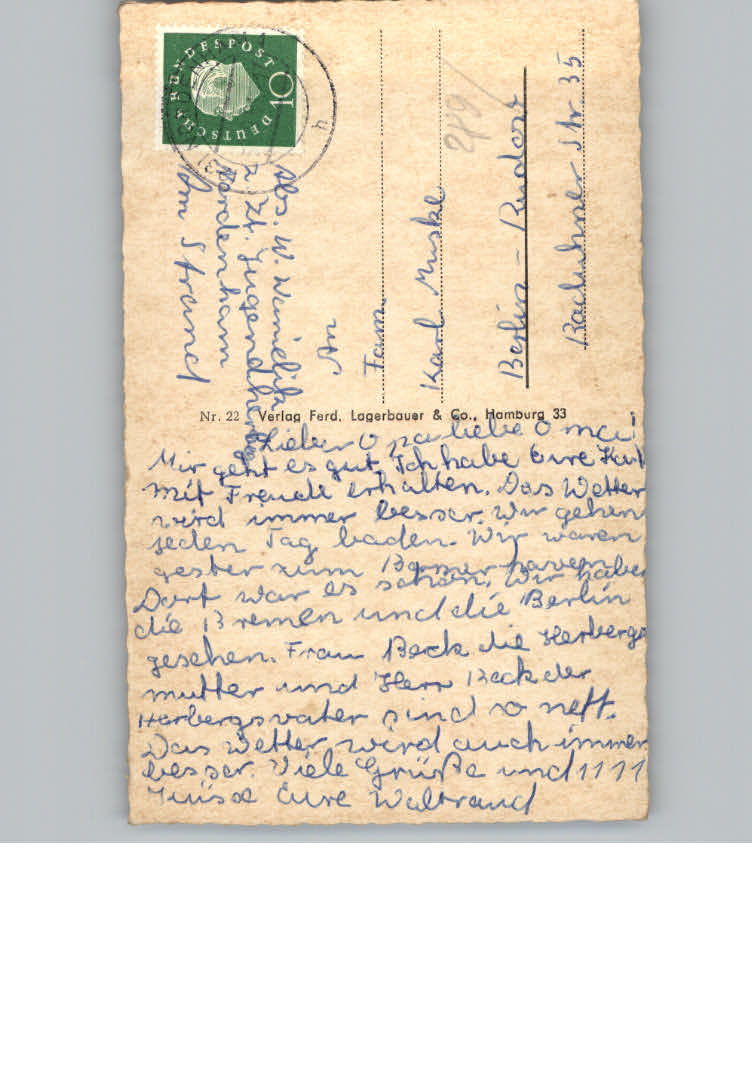 DEUTSCHE BUNDESPOST
10
Abs. W.
z. Zt. Jugendherberge
Nordenham
Am Strand
289
An
Fam.
Karl Muske
Berlin-Rudow
Str 35
Nr. 22 Verlag Ferd. Lagerbauer & Co., Hamburg 33
Lieber Opa liebe Oma!
Mir geht es gut, Ich habe Eure Kart
mit Freude erhalten. Das Wetter
wird immer besser. Wir gehen
jeden Tag baden. Wir waren
gester zum
Dort war es schön. Wir haben
die Bremen und die Berlin
gesehen. Frau Beck die Herbergs
mutter und Herr Beck der
Herbergsvater sind so nett.
Das Wetter wird auch immer
besser. Viele Grüße und 1111
Küsse Eure Waltraud